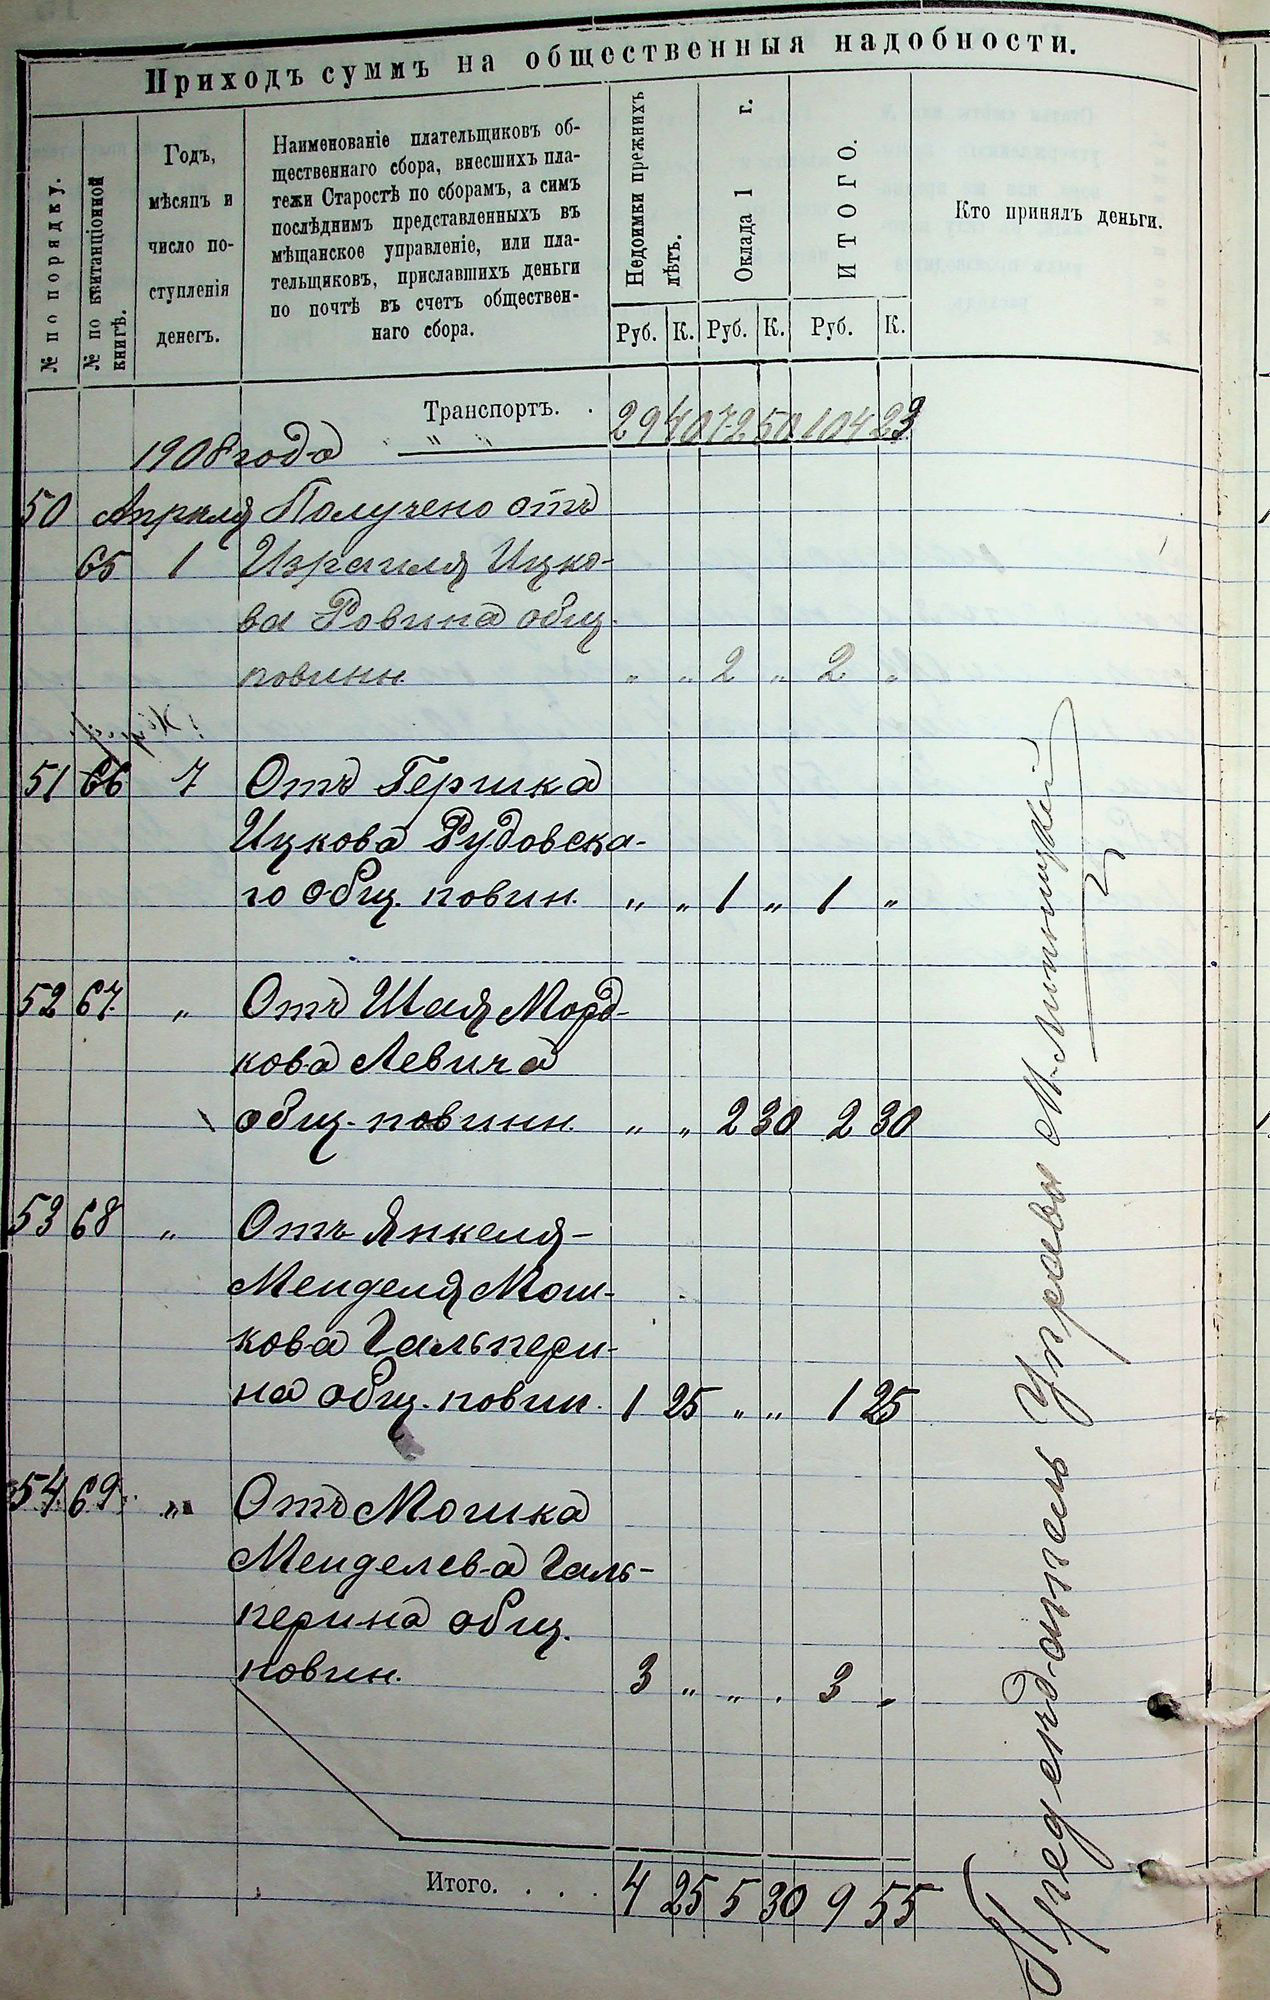 Приходъ суммъ на общественныя надобности.
№ по порядку.
№ по квитанціонной книгѣ.
Годъ,
мѣсяцъ и
число по-
ступленія
денегъ.
Наименованіе плательщиковъ об-
щественнаго сбора, внесшихъ пла-
тежи Старостѣ по сборамъ, а симъ
послѣднимъ представленныхъ въ
мѣщанское управленіе, или пла-
тельщиковъ, приславшихъ деньги
по почтѣ въ счетъ обществен-
наго сбора.
Недоимки прежнихъ лѣтъ.
Оклада 1 г.
ИТОГО.
Кто принялъ деньги.
Руб. К. Руб. К. Руб. К.
Транспортъ. . 29 40 72 50 104 23
1908 года " "
50 Апрѣля Получено отъ
65 1 Израиля Ицко-
ва Ровина общ.
повинн. " " 2 " 2 "
51 66 7 Отъ Гершка
Ицкова Рудовска-
го общ. повин. " " 1 " 1 "
52 67 " Отъ Шая Морд-
кова Левича
общ. повинн. " " 2 30 2 30
53 68 " Отъ Янкеля-
Менделя Мош-
кова Гальпери-
на общ. повин. 1 25 " " 1 25
54 69 " Отъ Мошка
Менделева Галь-
перина общ.
повин. 3 " " . 3 "
Итого. . . . 4 25 5 30 9 55
Председатель Управы М.